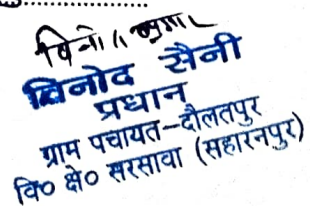 विनोद सैनी
प्रधान
ग्राम पंचायत-दौलतपुर
वि० क्षे० सरसावा (सहारनपुर)